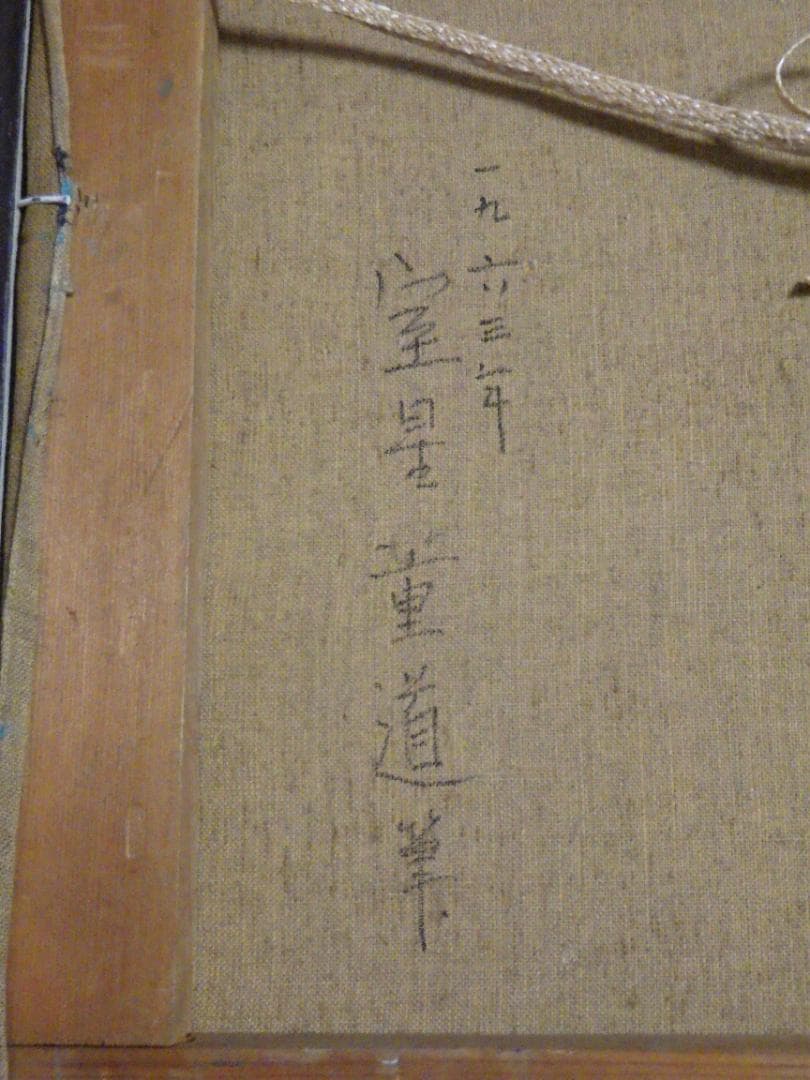 一九六三年
室星道筆